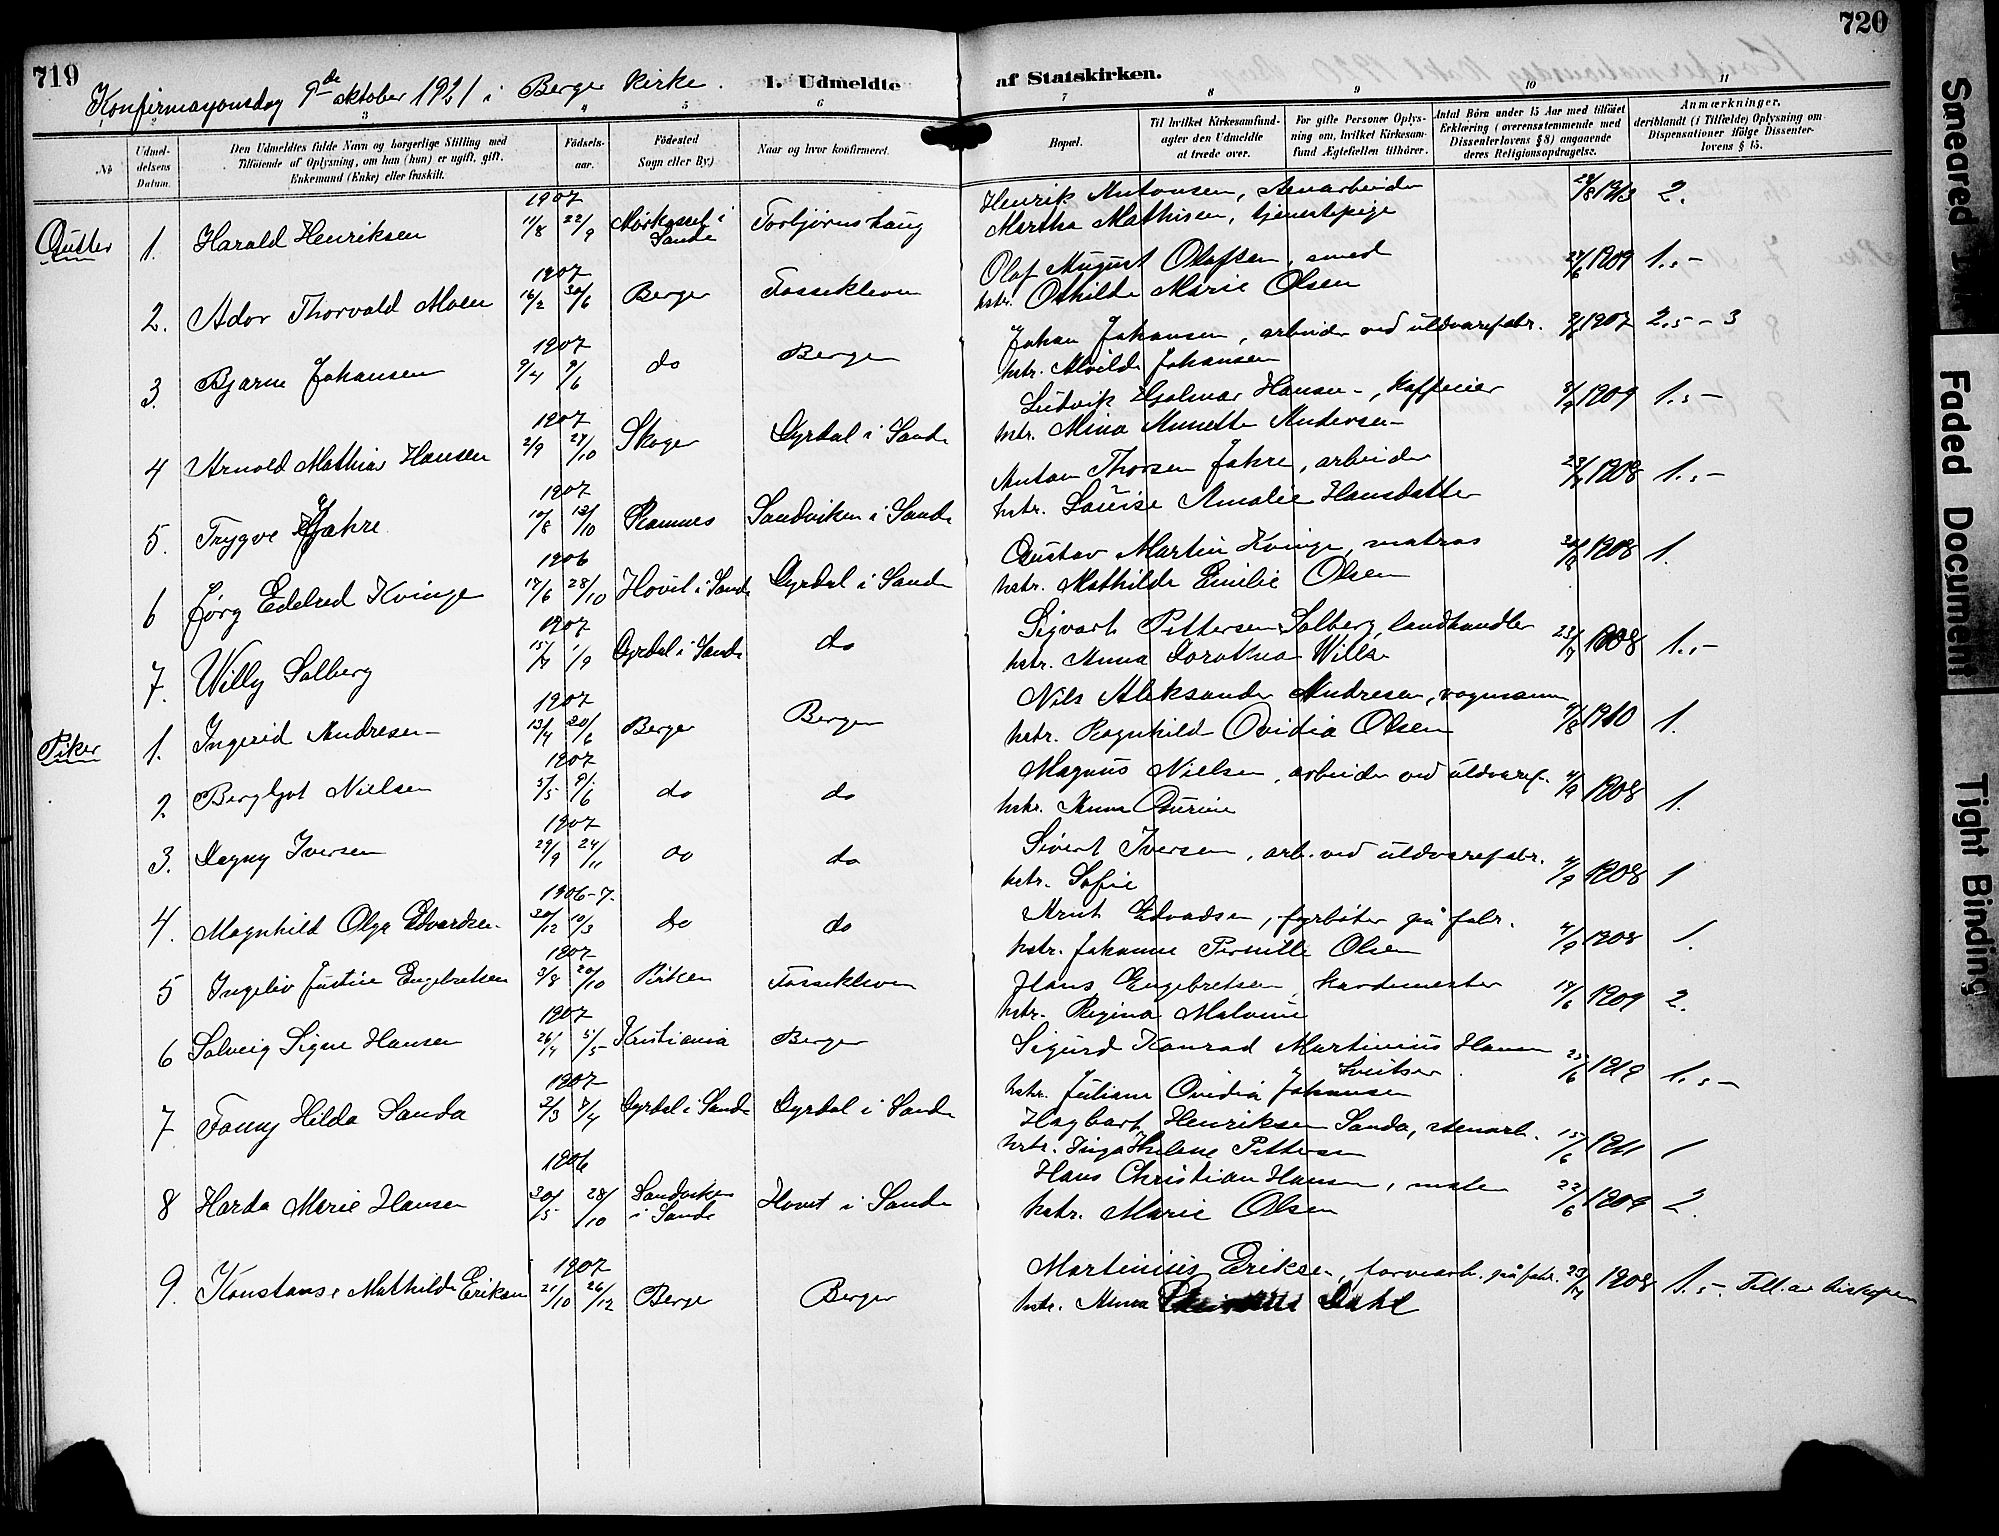 719
Konfirmasjonsdag 9de oktober 1921 i Berger kirke.
1. Udmeldte
af Statskirken.
720
3 4 5 6 7 8 9 10 11
No
Udmeldelsens Datum.
Den Udmeldtes fulde Navn og borgerlige Stilling med Tilføiende af Oplysning, om han (hun) er ugift, gift, Enkemand (Enke) eller fraskilt.
Fødselsaar.
Fødested Sogn eller By)
Naar og hvor konfirmeret.
Bopæl.
Til hvilket Kirkesamfund agter den Udmeldte at træde over.
For gifte Personer Oplysning om, hvilket Kirkesamfund Ægtefællen tilhører.
Antal Børn under 15 Aar med tilføiet Erklæring (overensstemmende med Dissenterlovens § 8) angaaende deres Religionsopdragelse.
Anmærkninger, deriblandt (i Tilfælde) Oplysning om Dispensationer ifølge Dissenterlovens § 15.
Gutter 1. Harald Henriksen 1907 11/8 22/9 i Sande Torbjørnshaug Henrik Antonsen, stenarbeider 1913 2.
Martha Mathisen, tjenestepige
2. Ador Thorvald Moen 1907 16/2 30/6 Berger Fossekleven Olaf August Olafsen, smed 1909 1.-
hstr. Othilde Marie Olsen
3. Bjarne Johansen 1907 9/4 9/6 do Berger Johan Johansen, arbeider ved uldvarefabr. 1907 2.- - 3
hstr. Alvilde Johansen
4 Arnold Mathias Hansen 1907 2/9 27/10 Skoger Gyrdal i Sande Ludvik Hjalmar Hansen, 1909 1.-
hstr. Mina Annette Andersen
5. Trygve Fjahre 1907 10/8 13/10 Ramnes Sandviken i Sande Anton Thorsen Jahre, arbeider 1908 1.-
hstr. Louise Amalie Hansdatter
6 Jörg Edelred Kvinge 1906 17/6 28/10 Hovet i Sande Gyrdal i Sande Gustav Martin Kvinge, matros 1908 1.
hstr. Mathilde Emilie Olsen
7. Willy Solberg 1907 15/7 1/9 Gyrdal i Sande do Sigvart Pettersen Solberg, landhandler 23/7 1908 1.-
hstr. Anna Dorothea Wille
Piker 1. Ingerid Andresen 1907 13/4 20/6 Berger Berger Nils Aleksander Andresen, vognmann 1910 1.
hstr. Ragnhild Ovidia Olsen
2 Bergljot Nielsen 1907 5/5 9/6 do do Magnus Nielsen, arbeider ved uldvaref. 4/9 1908 1.
hstr. Anna Gurine
3. Dagny Iversen 1907 29/9 24/11 do do Sivert Iversen, arb. ved uldvarefabr. 4/9 1908 1
hstr. Sofie
4. Magnhild Olga Edvardsen 1906-7. 30/12 10/3 do do Arnt Edvadsen, fyrbøter på fabr. 4/9 1908 1.
hstr. Johanne Pernille Olsen
5 Ingeliv Justine Engebretsen 1907 3/8 20/10 Fossekleven Hans Engebretsen, kardemester 19/6 1909 2.
hstr. Regina Malvine
6 Solveig Signe Hansen 1907 26/4 5/5 Kristiania Berger Sigurd Konrad Martinius Hansen 25/6 1919 1.-
hstr. Juliane Ovidia Johansen
7 Fanny Hilda Sanda 1907 2/3 7/4 Gyrdal i Sande Gyrdal i Sande Hagbart Henriksen Sanda, stenarb. 15/6 1911 1
hstr. Inga Helene Pettersen
8 Harda Marie Hansen 1906 30/5 28/10 Sandviken i Sande Hovet i Sande Hans Christian Hansen, maler 22/6 1909 2.
hstr. Marie Olsen
9. Konstanse Mathilde Eriksen 1907 21/10 26/12 Berger Berger Martinius Eriksen, farvearb. på fabr. 1908 1.- Till. av biskopen
hstr. Anna Dahl
Smeared Ink
Faded Document
Tight Binding